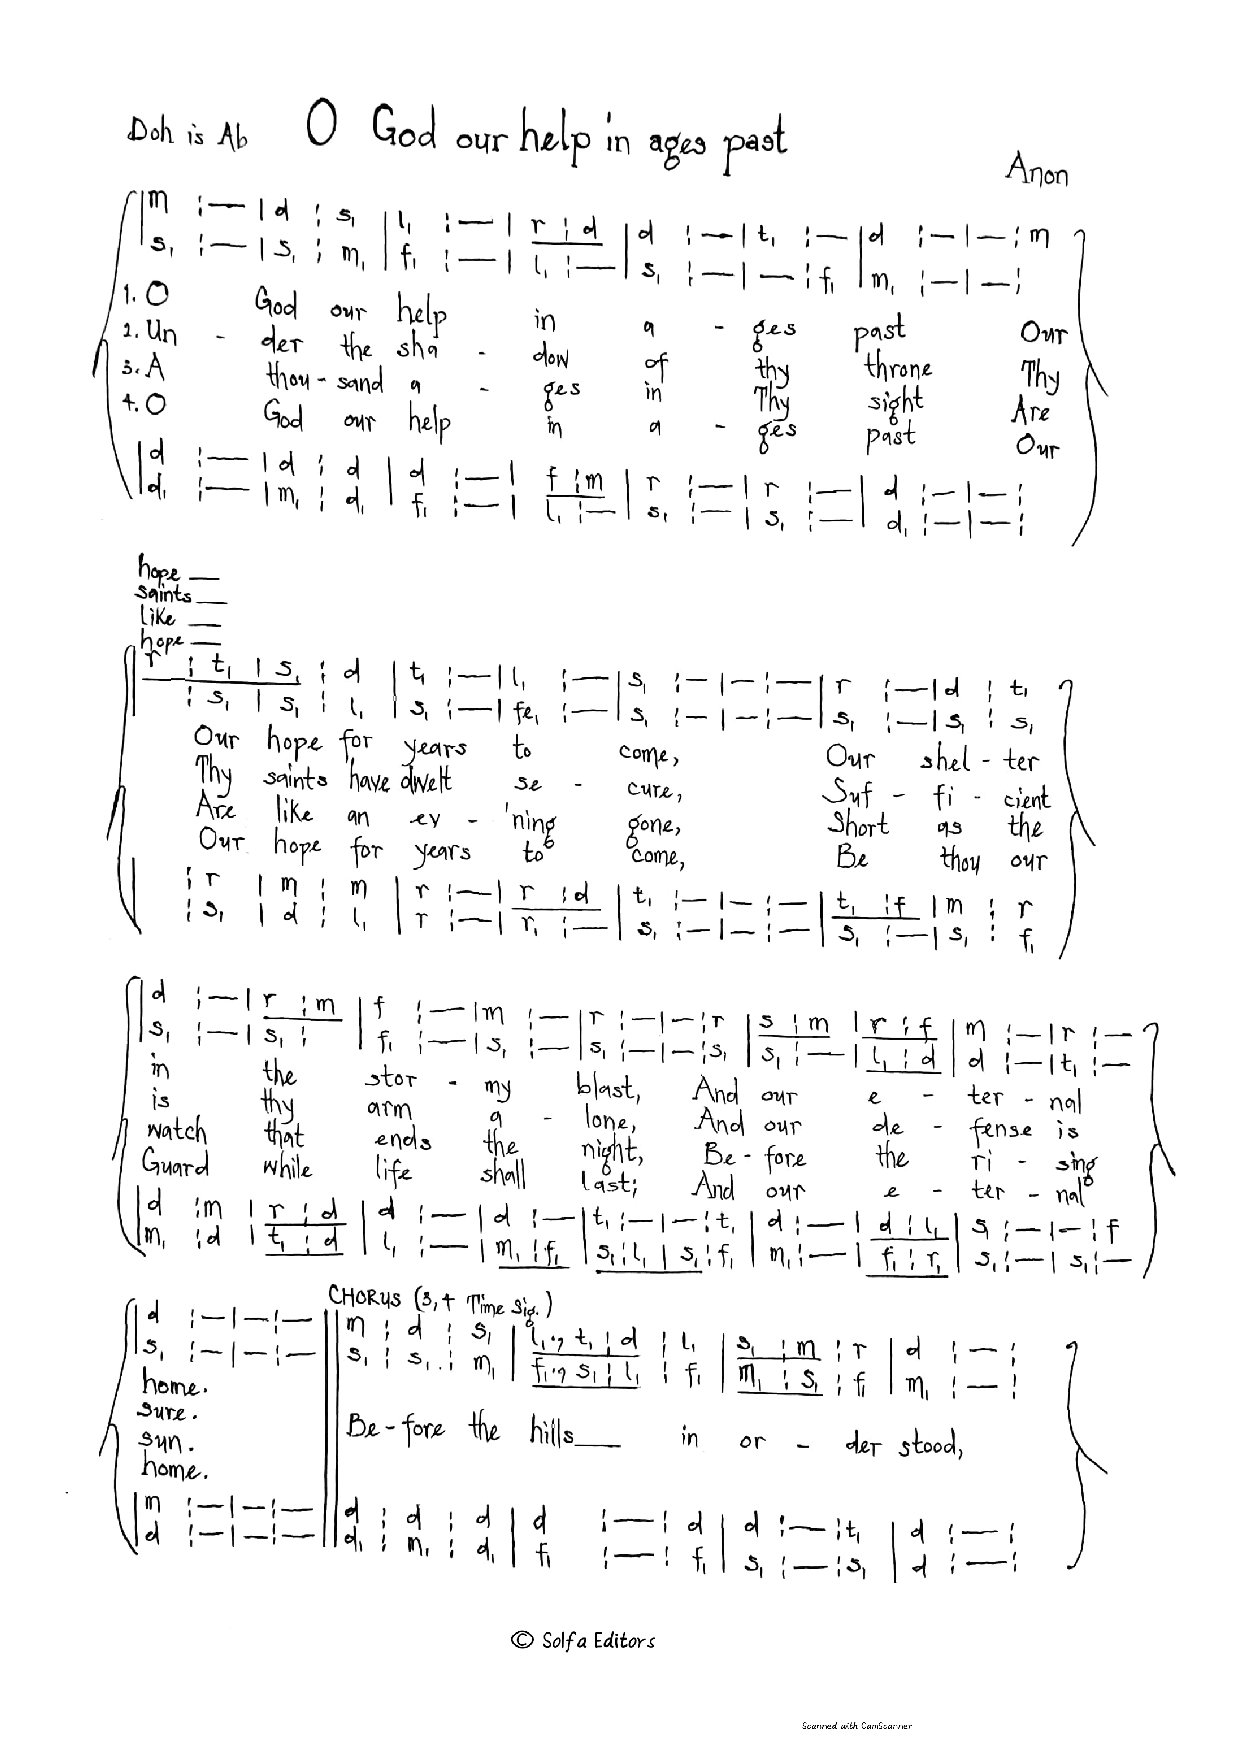 Doh is Ab O God our help in ages past
Anon
m :— | d : s₁ | l₁ :— | r : d | d :— | t₁ :— | d :— | — : m
s₁ :— | s₁ : m₁ | f₁ :— | l₁ :— | s₁ :— | — : f₁ | m₁ :— | — :
1. O God our help in a - ges past Our
2. Un - der the sha - dow of thy throne Thy
3. A thou - sand a - ges in Thy sight Are
4. O God our help in a - ges past Our
d :— | d : d | d :— | f : m | r :— | r :— | d :— | — :
d₁ :— | m₁ : d₁ | f₁ :— | l₁ :— | s₁ :— | s₁ :— | d₁ :— | — :
hope —
saints —
like —
hope —
r : t₁ | s₁ : d | t₁ :— | l₁ :— | s₁ :— | — :— | r :— | d : t₁
: s₁ | s₁ : l₁ | s₁ :— | fe₁ :— | s₁ :— | — :— | s₁ :— | s₁ : s₁
Our hope for years to come, Our shel - ter
Thy saints have dwelt se - cure, Suf - fi - cient
Are like an ev - 'ning gone, Short as the
Our hope for years to come, Be thou our
: r | m : m | r :— | r : d | t₁ :— | — :— | t₁ : f | m : r
: s₁ | d : l₁ | r :— | r₁ :— | s₁ :— | — :— | s₁ :— | s₁ : f₁
d :— | r : m | f :— | m :— | r :— | — : r | s : m | r : f | m :— | r :—
s₁ :— | s₁ : | f₁ :— | s₁ :— | s₁ :— | — : s₁ | s₁ :— | l₁ : d | d :— | t₁ :—
in the stor - my blast, And our e - ter - nal
is thy arm a - lone, And our de - fense is
watch that ends the night, Be - fore the ri - sing
Guard while life shall last; And our e - ter - nal
d : m | r : d | d :— | d :— | t₁ :— | — : t₁ | d :— | d : l₁ | s₁ :— | — : f
m₁ : d | t₁ : d | l₁ :— | m₁ : f₁ | s₁ : l₁ | s₁ : f₁ | m₁ :— | f₁ : r₁ | s₁ :— | s₁ :—
CHORUS (3,4 Time Sig.)
d :— | — :— || m : d : s₁ | l₁ ., t₁ : d : l₁ | s₁ : m : r | d :— :
s₁ :— | — :— || s₁ : s₁ . : m₁ | f₁ ., s₁ : l₁ : f₁ | m₁ : s₁ : f₁ | m₁ :— :
home.
sure.
sun.
home.
Be - fore the hills — in or - der stood,
m :— | — :— || d : d : d | d :— : d | d :— : t₁ | d :— :
d :— | — :— || d₁ : m₁ : d₁ | f₁ :— : f₁ | s₁ :— : s₁ | d :— :
© Solfa Editors
Scanned with CamScanner